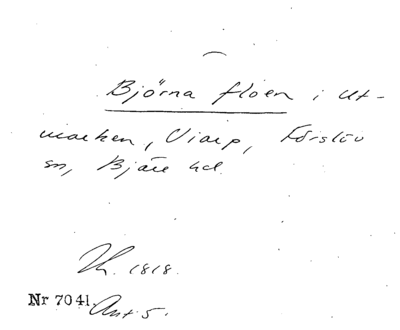 Björna floen i ut-
marken, Viarp, Förslöv
sn, Bjäre hd.
Lh. 1818.
Nr 7041. Ant. 5.